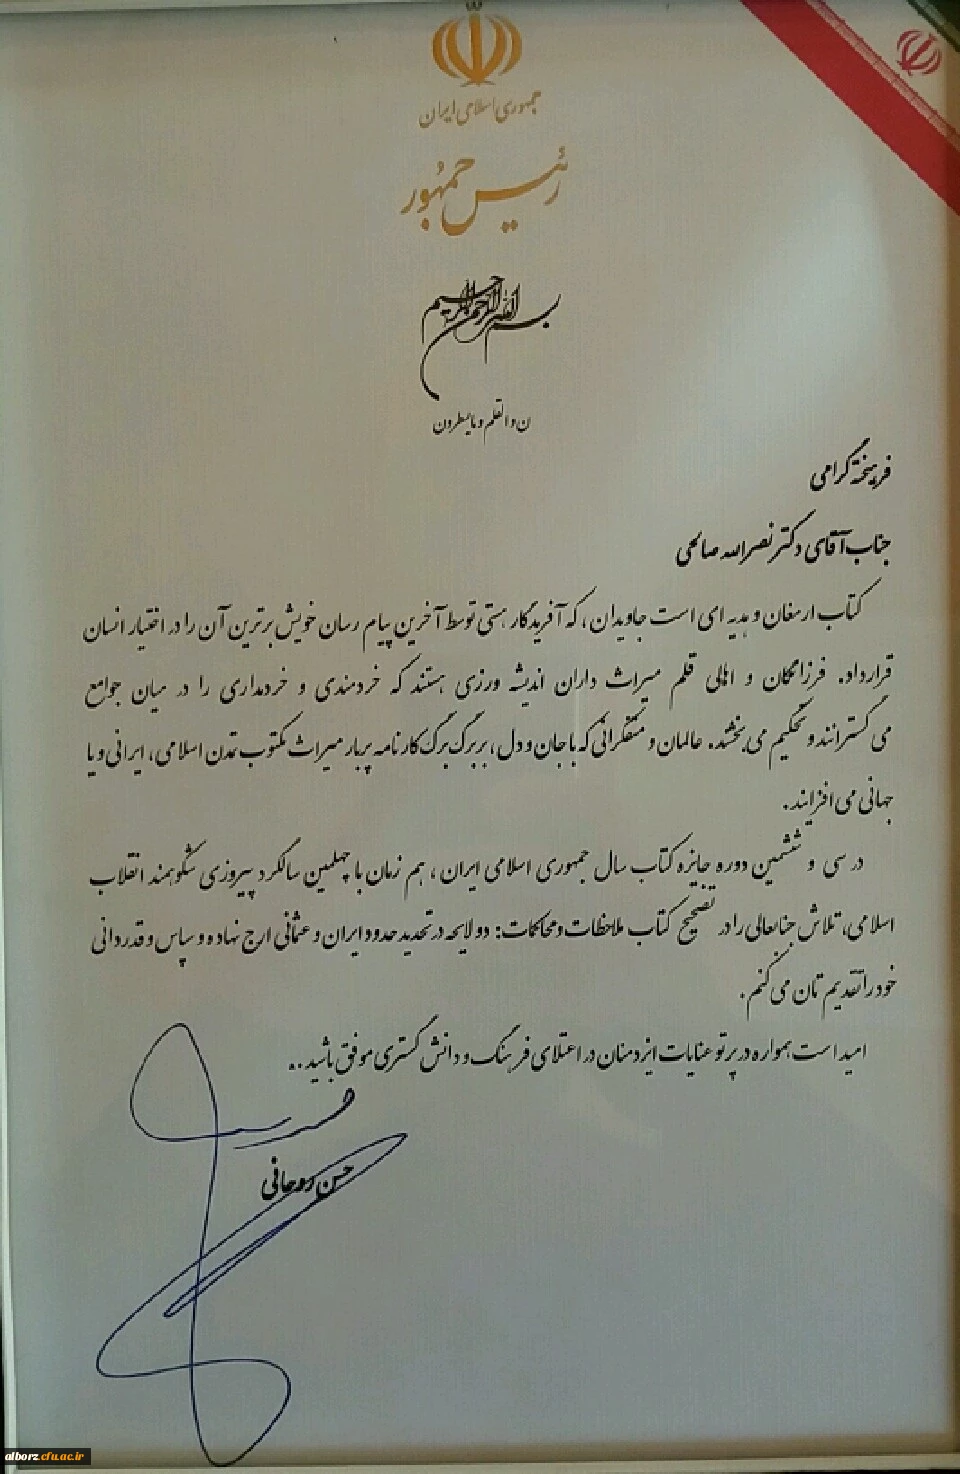 جمهوری اسلامی ایران
رئیس جمهور
بسم الله الرحمن الرحیم
ن والقلم و مایسطرون
فرهیخته گرامی
جناب آقای دکتر نصرالله صالحی
کتاب ارمغان و هدیه ای است جاویدان، که آفریدگار هستی توسط آخرین پیام رسان خویش برترین آن را در اختیار انسان
قرار داد. فرزانگان و اهالی قلم میراث داران اندیشه ورزی هستند که خردمندی و خردمداری را در میان جوامع
می گسترانند و تحکیم می بخشند. عالمان و متفکرانی که با جان و دل، بر برگ برگ کارنامه پربار میراث مکتوب تمدن اسلامی، ایرانی و یا
جهانی می افزایند.
در سی و ششمین دوره جایزه کتاب سال جمهوری اسلامی ایران، هم زمان با چهلمین سالگرد پیروزی شکوهمند انقلاب
اسلامی، تلاش جنابعالی را در تصحیح کتاب ملاحظات و محاکمات: دو لایحه در تحدید حدود ایران و عثمانی ارج نهاده و سپاس و قدردانی
خود را تقدیم تان می کنم.
امید است همواره در پرتو عنایات ایزد منان در اعتلای فرهنگ و دانش گستری موفق باشید..
حسن روحانی
alborz.cfu.ac.ir